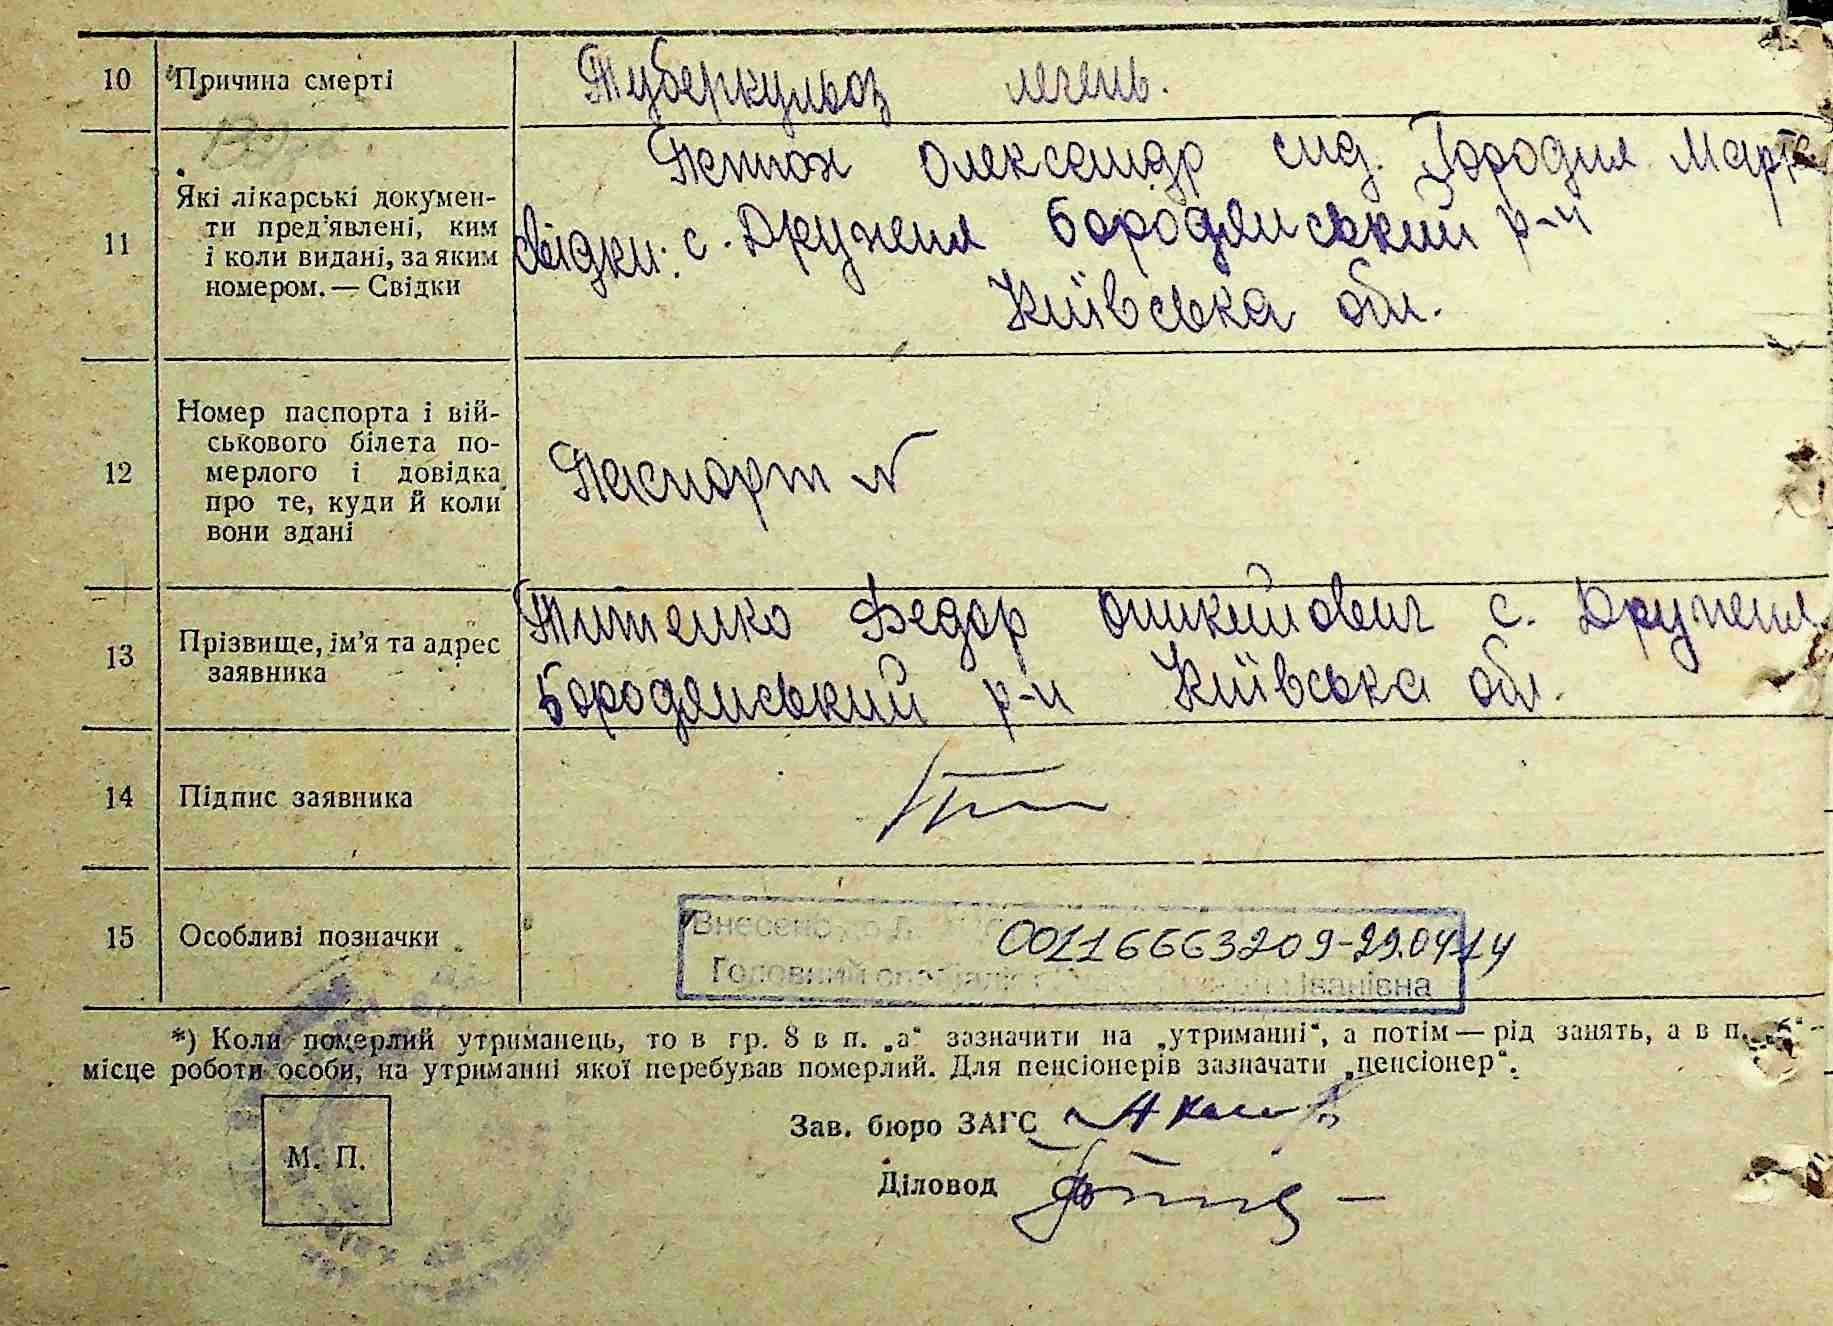 10 Причина смерті Туберкульоз легень.
11 Які лікарські докумен-
ти пред'явлені, ким
і коли видані, за яким
номером. — Свідки
Олександр Городня Марфа
свідки: с. Дружня Бородянський р-н
Київська обл.
12 Номер паспорта і вій-
ськового білета по-
мерлого і довідка
про те, куди й коли
вони здані
Паспорт №
13 Прізвище, ім'я та адрес
заявника
Титенко Федор с. Дружня
Бородянський р-н Київська обл.
14 Підпис заявника
15 Особливі позначки
Внесено до
00116663209-29.04.14
Головний спеціаліст Іванівна
*) Коли померлий утриманець, то в гр. 8 в п. „а“ зазначити на „утриманні“, а потім — рід занять, а в п. „б“ —
місце роботи особи, на утриманні якої перебував померлий. Для пенсіонерів зазначати „пенсіонер“.
Зав. бюро ЗАГС
М. П.
Діловод